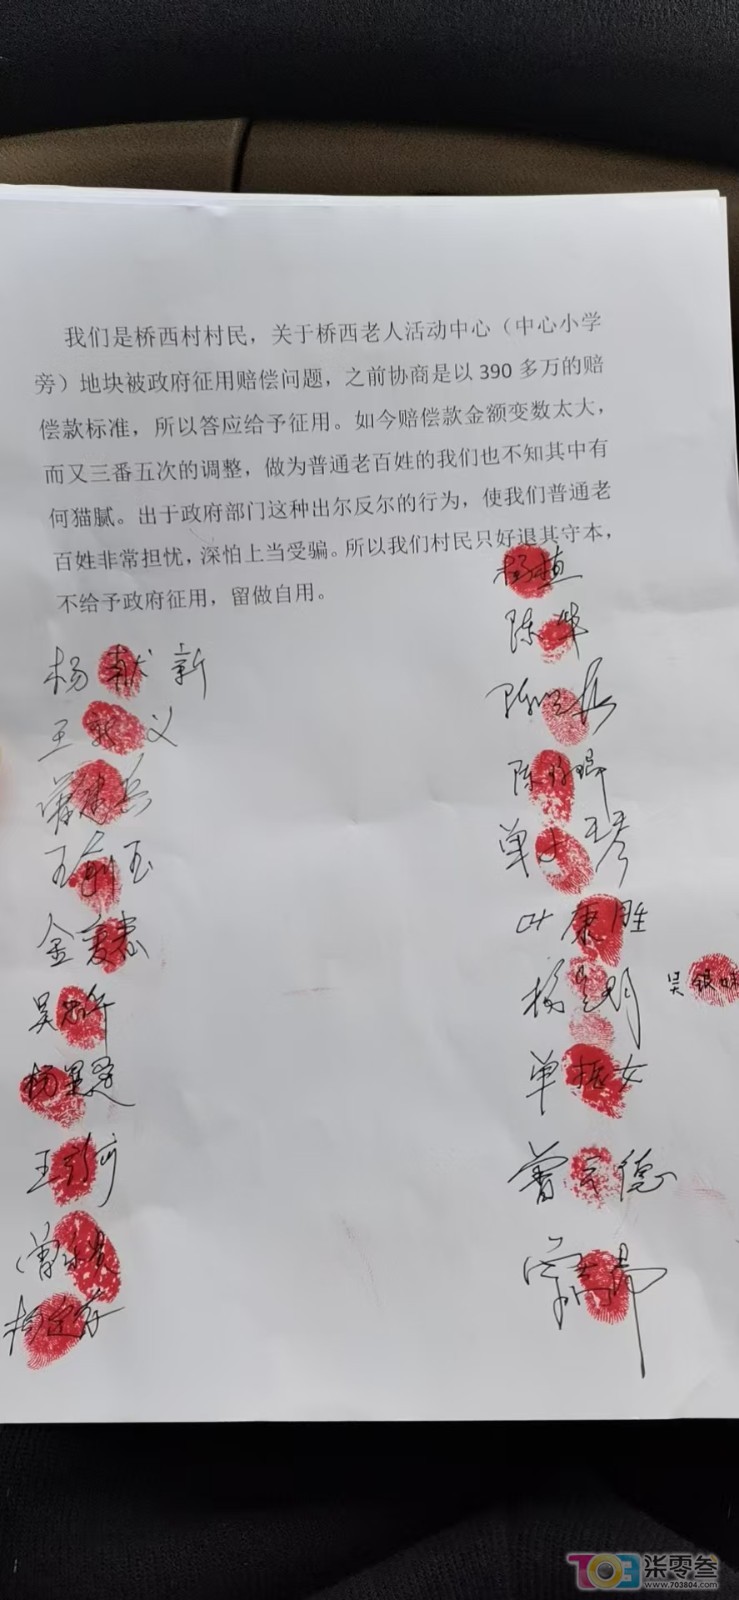 我们是桥西村村民，关于桥西老人活动中心（中心小学
旁）地块被政府征用赔偿问题，之前协商是以 390 多万的赔
偿款标准，所以答应给予征用。如今赔偿款金额变数太大，
而又三番五次的调整，做为普通老百姓的我们也不知其中有
何猫腻。出于政府部门这种出尔反尔的行为，使我们普通老
百姓非常担忧，深怕上当受骗。所以我们村民只好退其守本，
不给予政府征用，留做自用。
杨献新
王
王剑玉
金
吴
杨
王
曾
杨
杨植
陈华
陈
陈
单 琴
叶康胜
杨 明
吴银妹
单振女
曾 德
703 柒零叁
www.703804.com